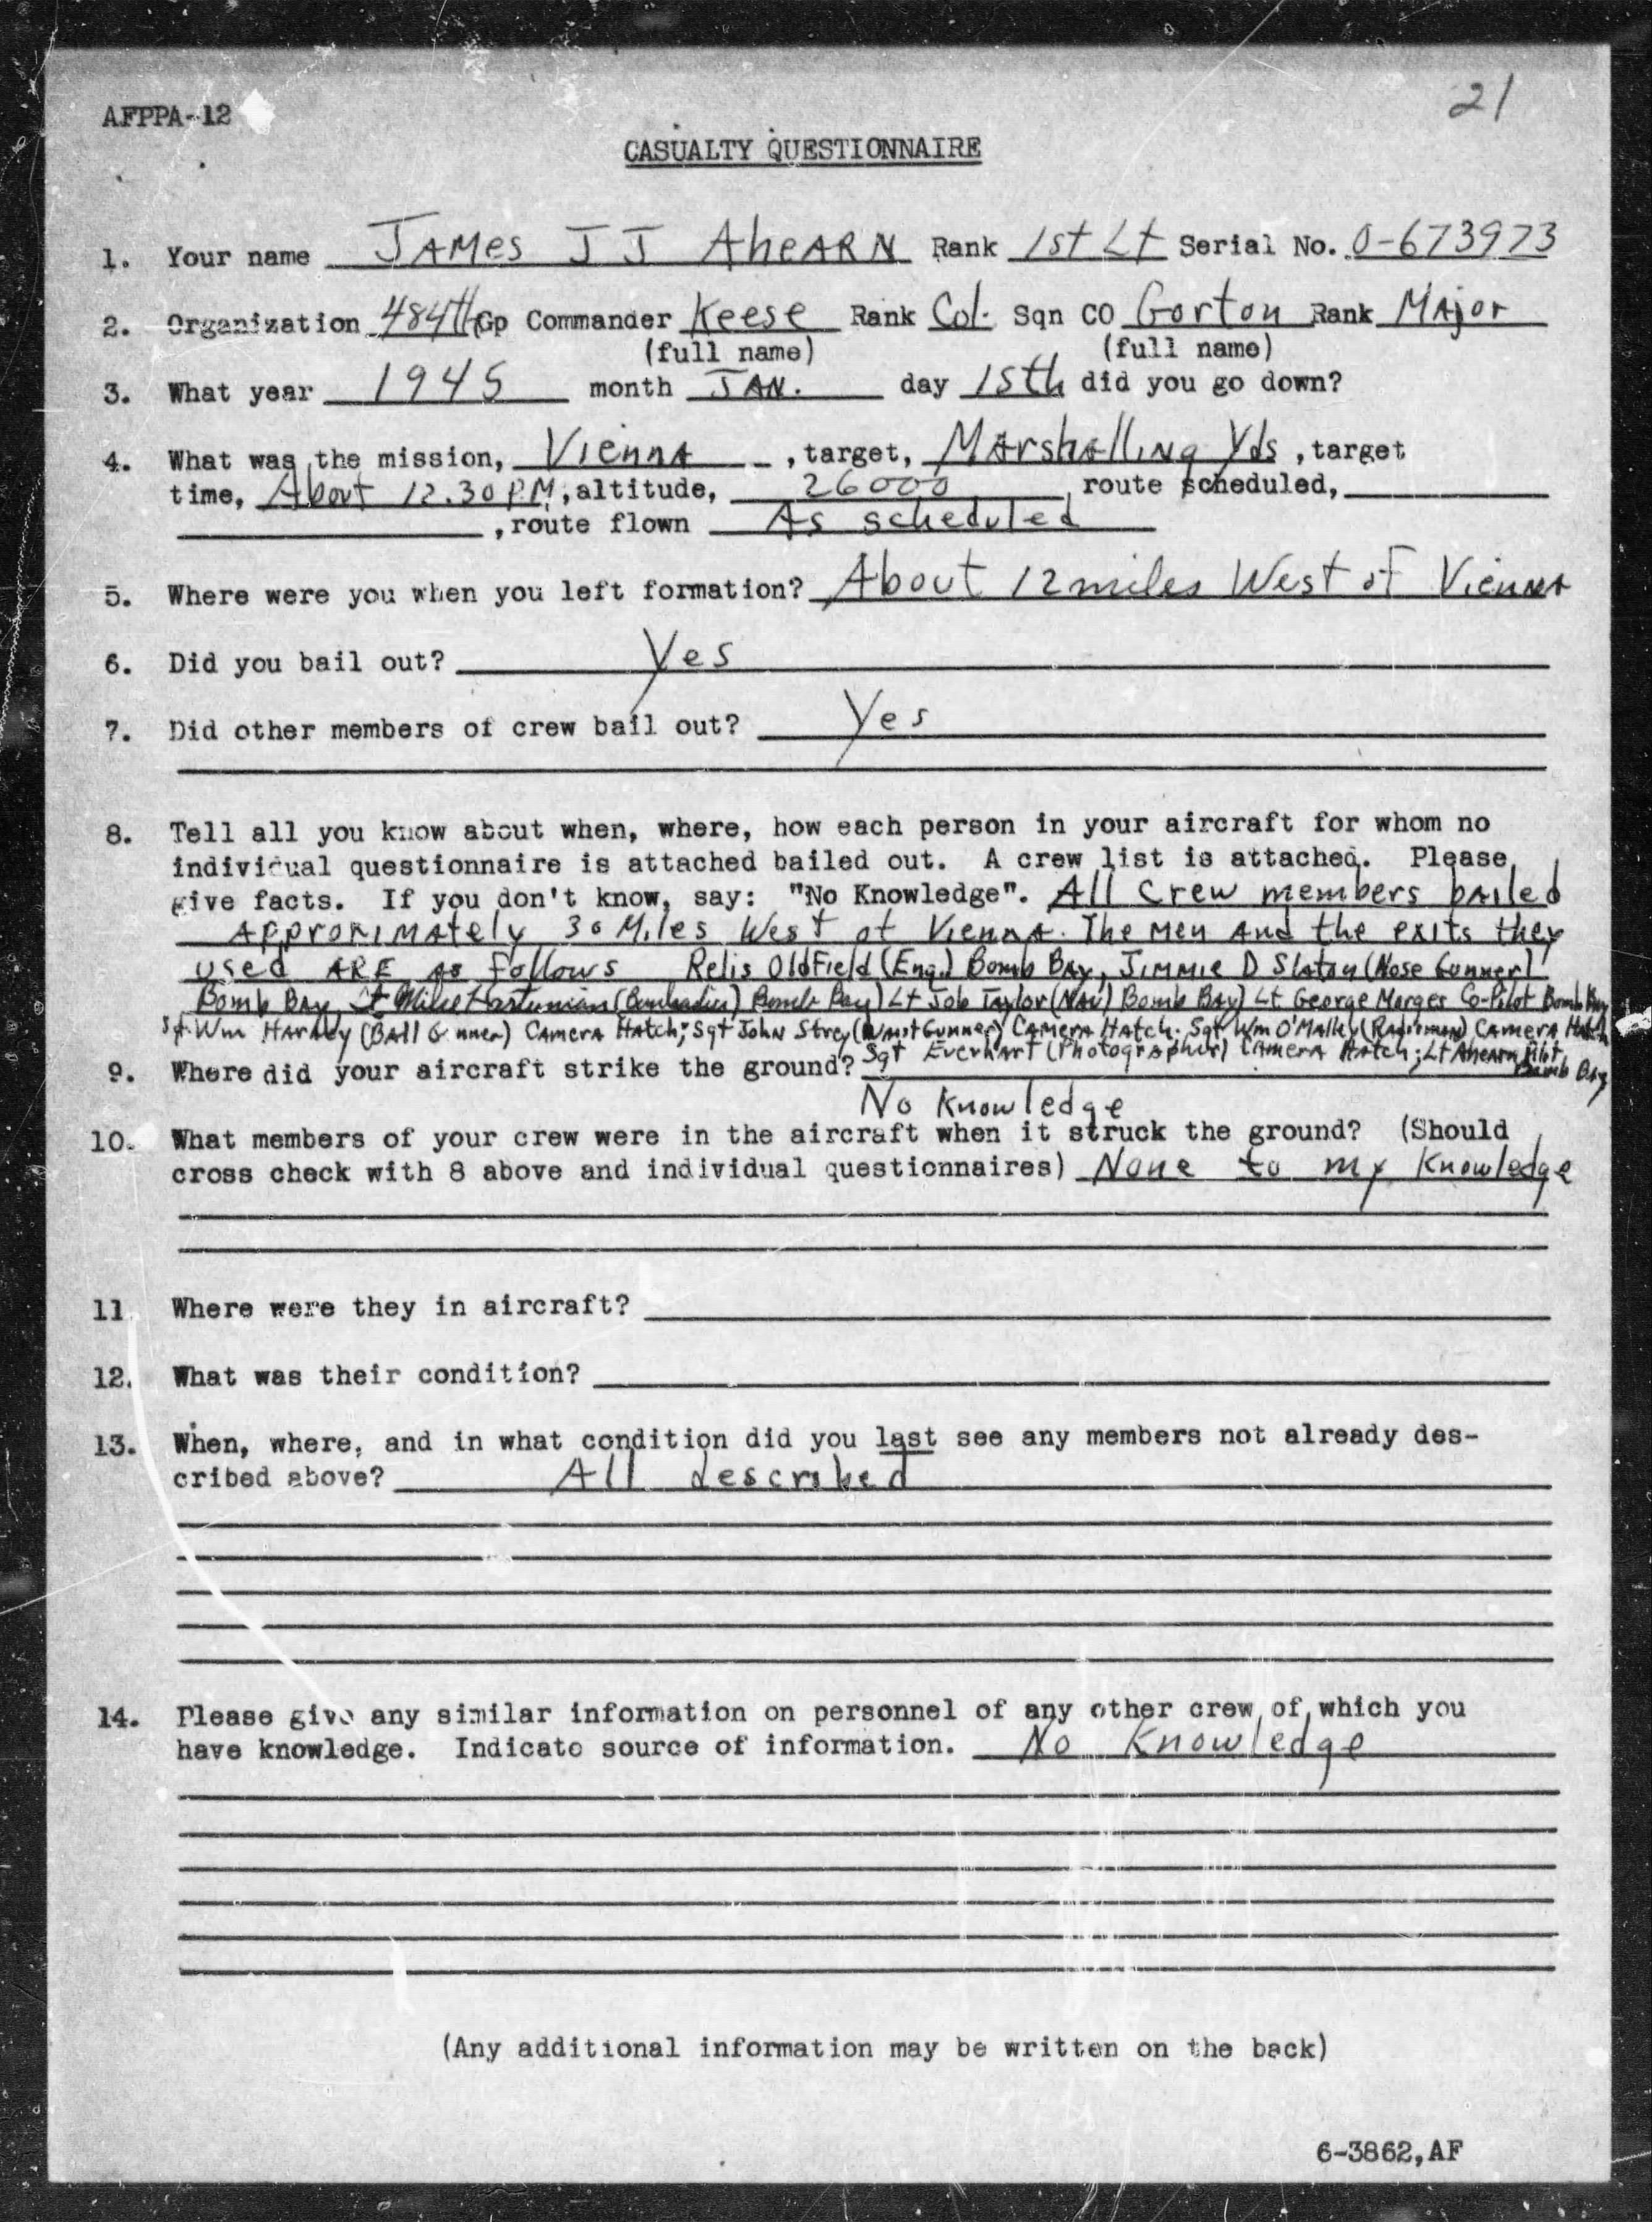 21
AFPPA-12
CASUALTY QUESTIONNAIRE
1. Your name JAMes J J AheARN Rank 1st Lt Serial No. O-673973
2. Organization 484th Gp Commander Keese Rank Col. Sqn CO Gorton Rank MAjor
(full name) (full name)
3. What year 1945 month JAN. day 15th did you go down?
4. What was the mission, Vienna , target, Marshalling Yds , target
time, About 12.30 P.M , altitude, 26000 , route scheduled,
, route flown As scheduled
5. Where were you when you left formation? About 12 miles West of Vienna
6. Did you bail out? Yes
7. Did other members of crew bail out? Yes
8. Tell all you know about when, where, how each person in your aircraft for whom no
individual questionnaire is attached bailed out. A crew list is attached. Please
give facts. If you don't know, say: "No Knowledge". All crew members bailed
Approximately 30 Miles West of Vienna. The men and the exits they
used ARE as follows Relis OldField (Eng.) Bomb Bay, Jimmie D Slaton (Nose Gunner)
Bomb Bay, Lt Mike Hartunian (Bombadier) Bomb Bay) Lt Job Taylor (Nav) Bomb Bay) Lt George Marges Co-Pilot Bomb Bay
Sgt Wm Harvey (BAll Gunner) Camera Hatch; Sgt John Strey (Waist Gunner) Camera Hatch. Sgt Wm O'Malley (Radioman) Camera Hatch
Sgt Everhart (Photographer) Camera Hatch; Lt Ahearn Pilot
Bomb Bay
9. Where did your aircraft strike the ground?
No Knowledge
10. What members of your crew were in the aircraft when it struck the ground? (Should
cross check with 8 above and individual questionnaires) None to my Knowledge
11. Where were they in aircraft?
12. What was their condition?
13. When, where, and in what condition did you last see any members not already des-
cribed above? All described
14. Please give any similar information on personnel of any other crew of which you
have knowledge. Indicate source of information. No Knowledge
(Any additional information may be written on the back)
6-3862,AF